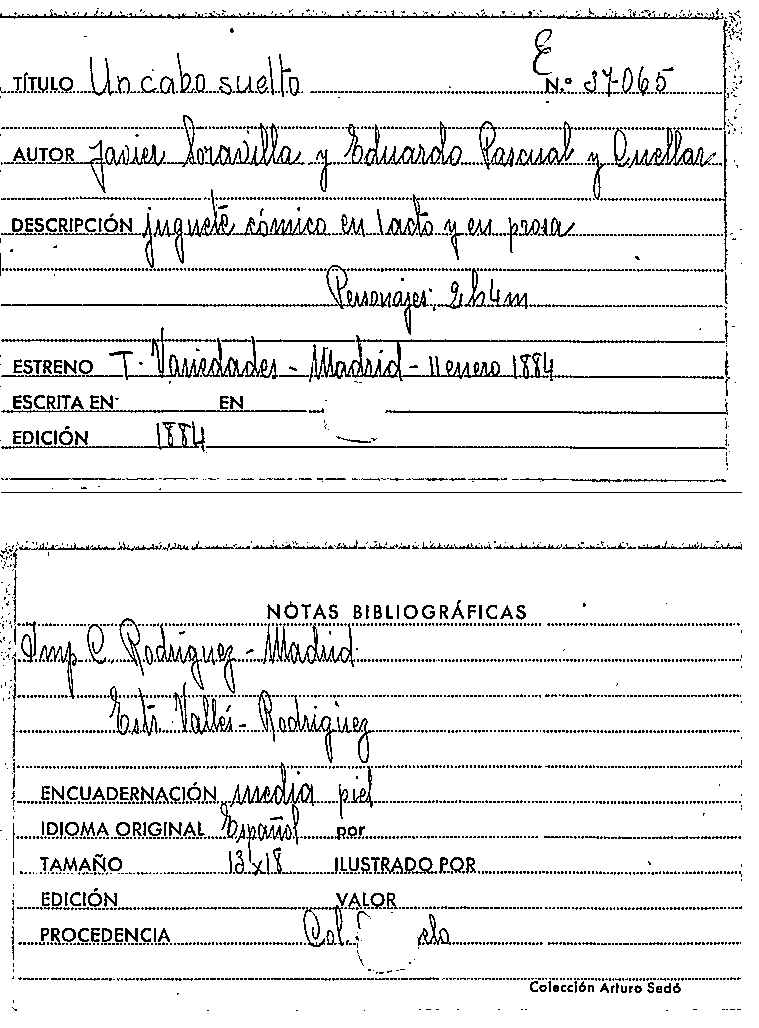 E
TÍTULO Un cabo suelto N.º 37-065
AUTOR Javier Soravilla y Eduardo Pascual y Cuellar
DESCRIPCIÓN juguete cómico en 1 acto y en prosa
Personajes: 2h4m
ESTRENO T. Variedades - Madrid - 11 enero 1884
ESCRITA EN EN
EDICIÓN 1884
NOTAS BIBLIOGRÁFICAS
Imp C. Rodríguez - Madrid
Estr. Vallés - Rodriguez
ENCUADERNACIÓN media piel
IDIOMA ORIGINAL Español por
TAMAÑO 13x18 ILUSTRADO POR
EDICIÓN VALOR
PROCEDENCIA Col.
Colección Arturo Sedó